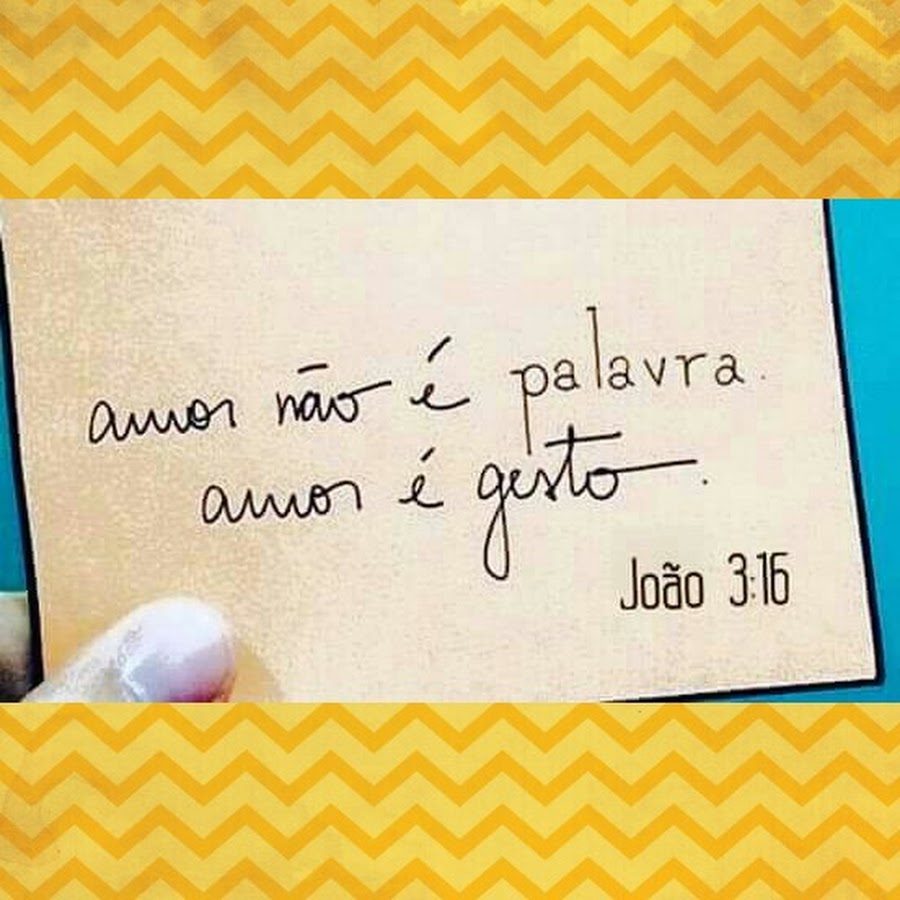 amor não é palavra.
amor é gesto.
João 3:16